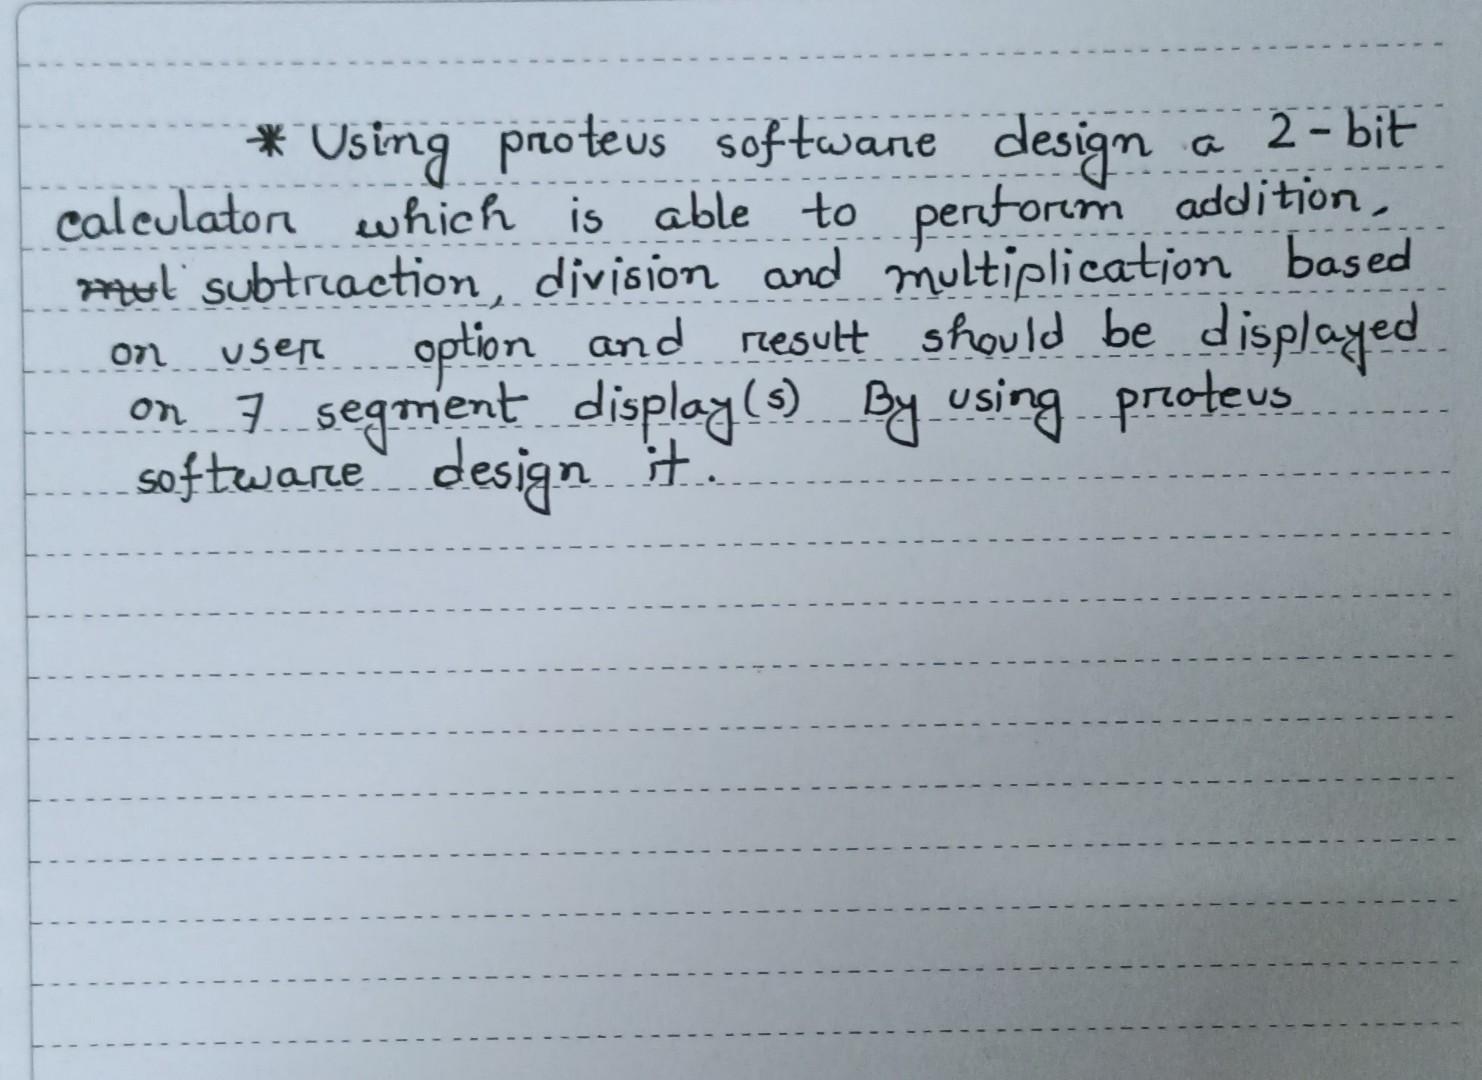 * Using proteus software design a 2-bit
calculator which is able to perform addition,
mul subtraction, division and multiplication based
on user option and result should be displayed
on 7 segment display(s) By using proteus
software design it.